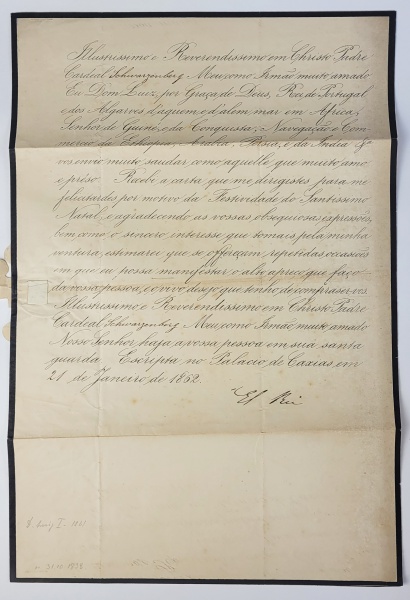 Illustrissimo e Reverendissimo em Christo Padre
Cardeal Schwarzenberg Meu, como Irmão muito amado
Eu Dom Luiz, por Graça de Deus, Rei de Portugal
e dos Algarves d'aquem, e d'alem mar em Africa,
Senhor de Guiné, e da Conquista, Navegação e Com-
mercio da Ethiopia, Arabia, Persia, e da India &
vos envio muito saudar, como aquelle que muito amo
e prèso. Recebi a carta que me dirigistes para me
felicitardes por motivo da Festividade do Santissimo
Natal, e agradecendo as vossas obsequiosas expressões,
bem como o sincero interesse que tomais pela minha
ventura, estimarei que se offereçam repetidas occasiões
em que eu possa manifestar o alto apreço que faço
da vossa pessoa, e o vivo desejo que tenho de comprazer-vos.
Illustrissimo e Reverendissimo em Christo Padre
Cardeal Schwarzenberg Meu, como Irmão muito amado
Nosso Senhor haja a vossa pessoa em sua santa
guarda. Escripta no Palacio de Caxias em
21 de Janeiro de 1862.
El Rei
I. 1861